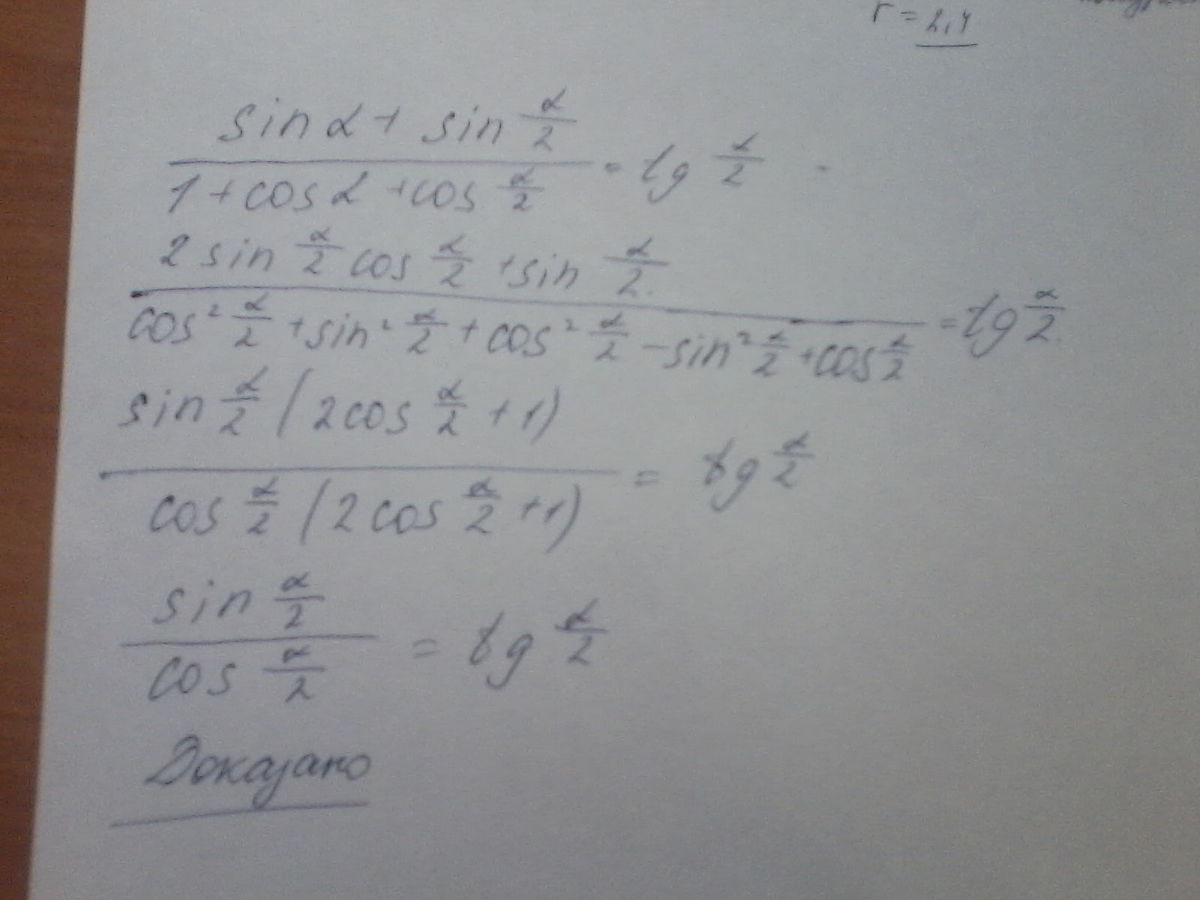 r = 2,4
(sin α + sin α/2) / (1 + cos α + cos α/2) = tg α/2
(2 sin α/2 cos α/2 + sin α/2) / (cos² α/2 + sin² α/2 + cos² α/2 − sin² α/2 + cos α/2) = tg α/2
sin α/2 (2 cos α/2 + 1) / cos α/2 (2 cos α/2 + 1) = tg α/2
sin α/2 / cos α/2 = tg α/2
Доказано